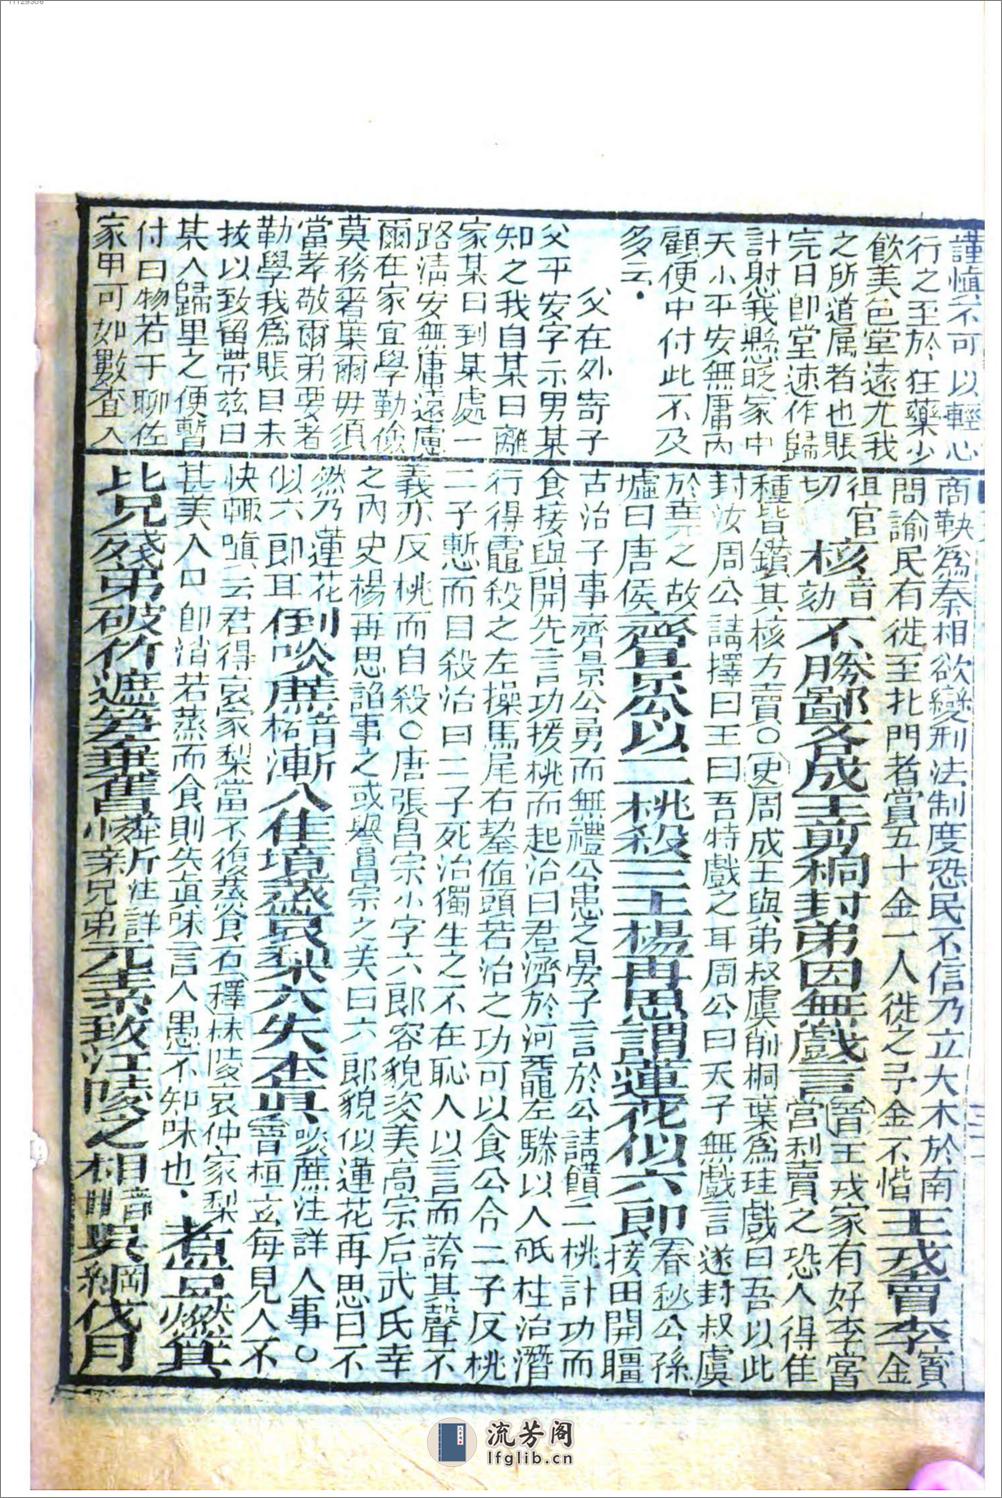 謹慎不可以輕心
行之至於狂藥少
飲美色堂遠尤我
之所追属者也賬
完日即堂速作歸
計慰我懸眨家中
大小平安無庸內
顧便中付此不及
多云
父在外寄子
父平安字示男某
知之我自某日離
家某日到某處一
路清安無庸遠慮
爾在家宜學勤儉
莫務奢華爾毋須
當孝敬爾弟要者
勤學我為賬目未
拔以致留帶茲日
某人歸里之便暫
付曰物若于聊佐
家用可如數查入
商鞅為秦相欲變刑法制度恐民不信乃立大木於南
門諭民有徙至北門者賞五十金一人徙之予金不惜王戎賣李實金
徂官切核音劾不勝鄙吝成王剪桐封弟因無戲言晉王戎家有好李當營利賣之恐人得佳
種皆鑽其核方賣〇史周成王與弟叔虞削桐葉為珪戲曰吾以此
封汝周公請擇曰王曰吾特戲之耳周公曰天子無戲言遂封叔虞
於堯之故墟曰唐侯齊景以二桃殺三士楊再思謂蓮花似六郎春秋公孫接田開疆
古治子事齊景公勇而無禮公患之晏子言於公請饋二桃計功而
食接與開先言功援桃而起治曰君濟於河黿左驂以入砥柱治潛
行得黿殺之左操馬尾右挈黿頭若治之功可以食公令二子反桃
二子慚而自殺治曰二子死治獨生之不在恥人以言而誇其聲不
義亦反桃而自殺〇唐張昌宗小字六郎容貌姿美高宗后武氏幸
之內史楊再思諂事之或譽昌宗之美曰六郎貌似蓮花再思曰不
然乃蓮花似六郎耳倒啖蔗音柘漸入佳境蒸哀梨亦失本真啖蔗注詳人事〇晉桓玄每見人不
快輒嗔云君得哀家梨當不復蒸食否釋秣陵哀仲家梨
甚美入口即消若蒸而食則失真味言人愚不知味也煮豆燃萁
比兄殘弟破竹遮筍棄舊憐新注詳兄弟元素致江陵之柑吳綱伐月
流芳阁
lfglib.cn